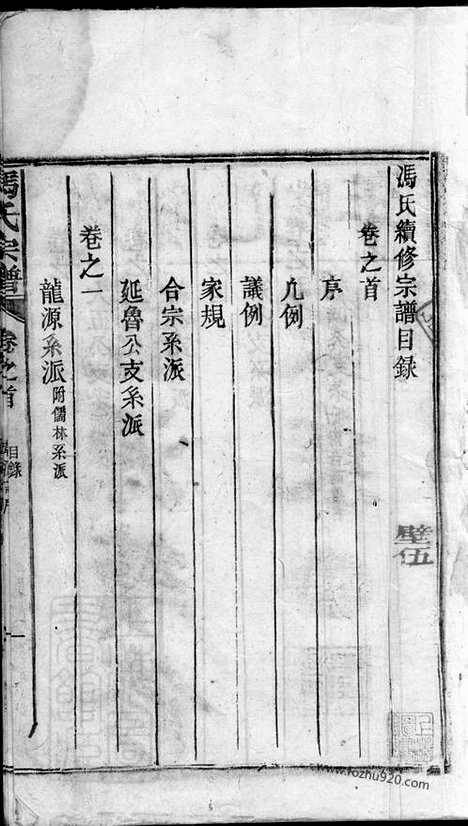 馮氏續修宗譜目錄
壁伍
卷之首
序
凡例
議例
家規
合宗系派
延魯公支系派
卷之一
龍源系派附儒林系派
馮氏宗譜
卷之首
目錄
一
www.fozhu920.com